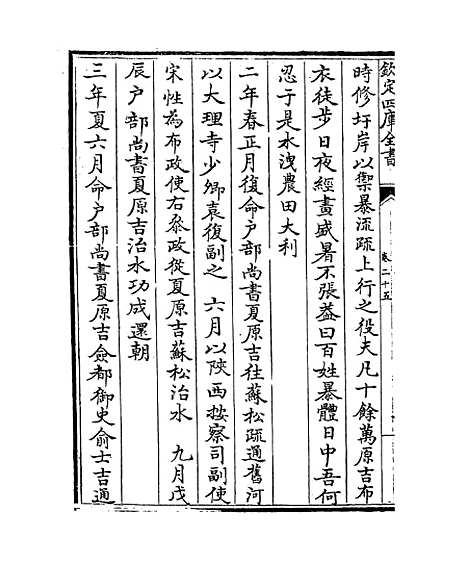 欽定四庫全書
卷二十五
時修圩岸以禦暴流疏上行之役夫凡十餘萬原吉布
衣徒步日夜經畫盛暑不張蓋曰百姓暴體日中吾何
忍于是水洩農田大利
二年春正月復命户部尚書夏原吉往蘇松疏通舊河
以大理寺少卿袁復副之　六月以陝西按察司副使
宋性為布政使右參政從夏原吉蘇松治水　九月戊
辰户部尚書夏原吉治水功成還朝
三年夏六月命户部尚書夏原吉僉都御史俞士吉通